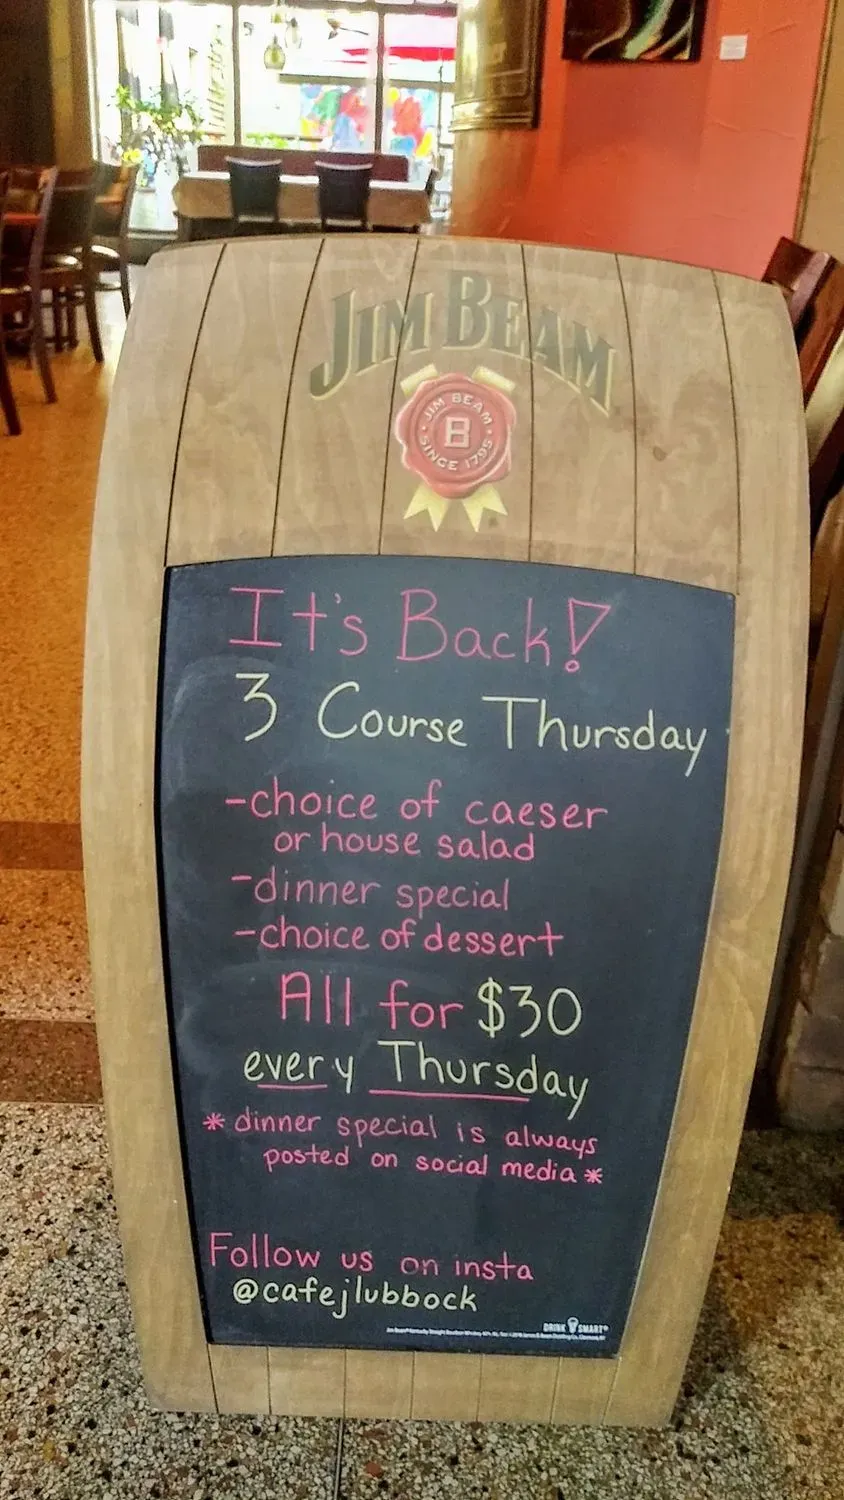 JIM BEAM
JIM BEAM
B
SINCE 1795
It's Back!
3 Course Thursday
-choice of caeser
or house salad
-dinner special
-choice of dessert
All for $30
every Thursday
* dinner special is always
posted on social media *
Follow us on insta
@cafejlubbock
DRINK SMART®